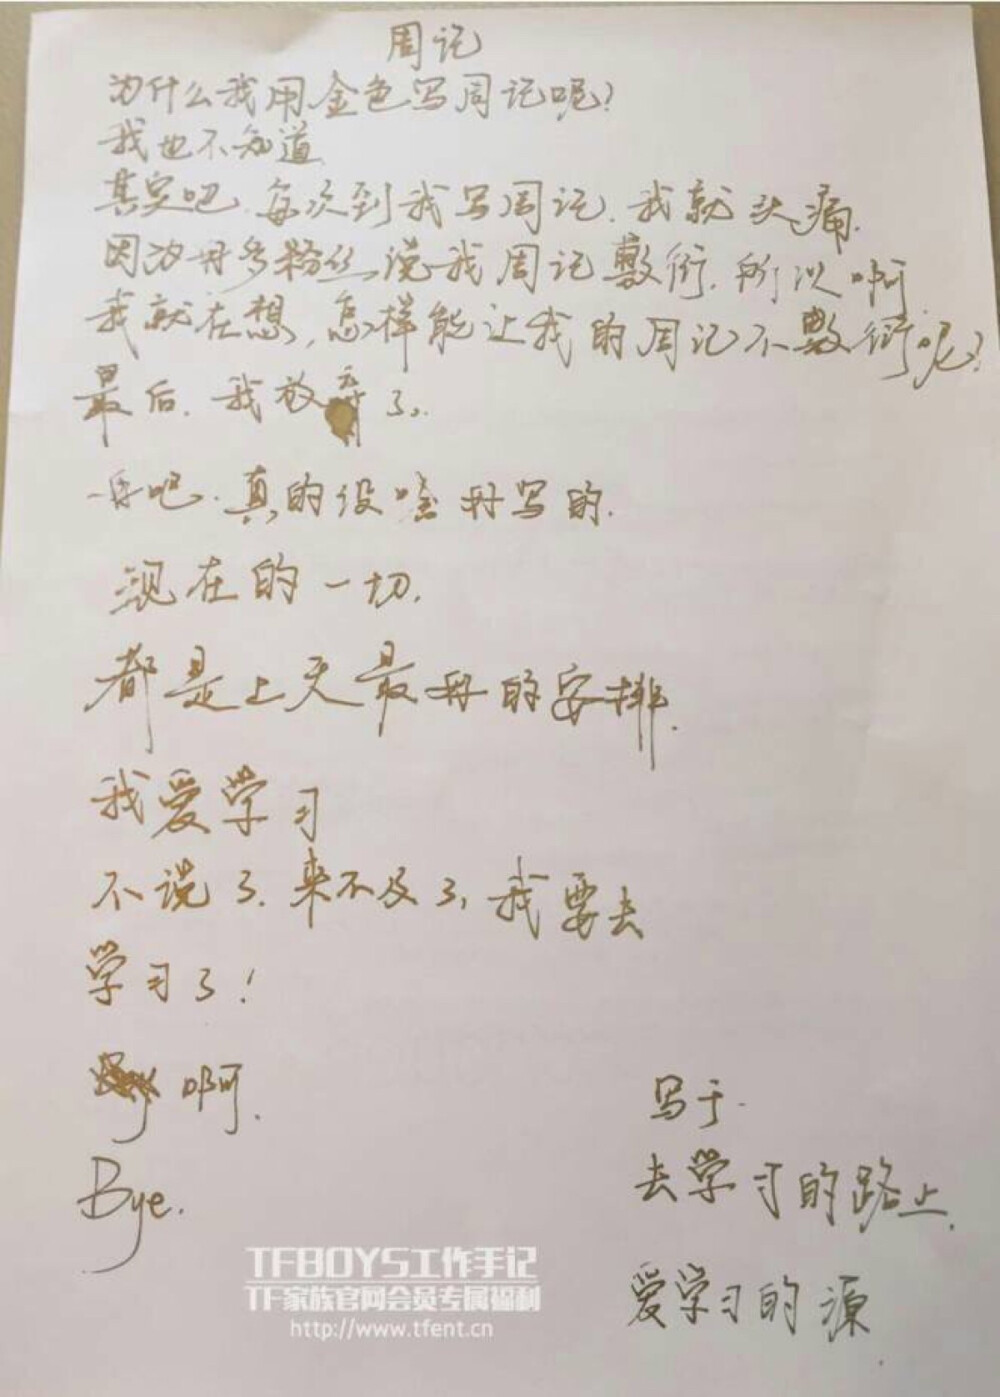 周记
为什么我用金色写周记呢?
我也不知道
其实吧.每次到我写周记.我就头痛.
因为好多粉丝说我周记敷衍.所以啊
我就在想,怎样能让我的周记不敷衍呢?
最后.我放弃了.
吧.真的没啥好写的.
现在的一切.
都是上天最好的安排.
我爱学习
不说了.来不及了,我要去
学习了!
啊.
Bye.
写于.
去学习的路上.
爱学习的源.
TFBOYS工作手记
TF家族官网会员专属福利
http://www.tfent.cn